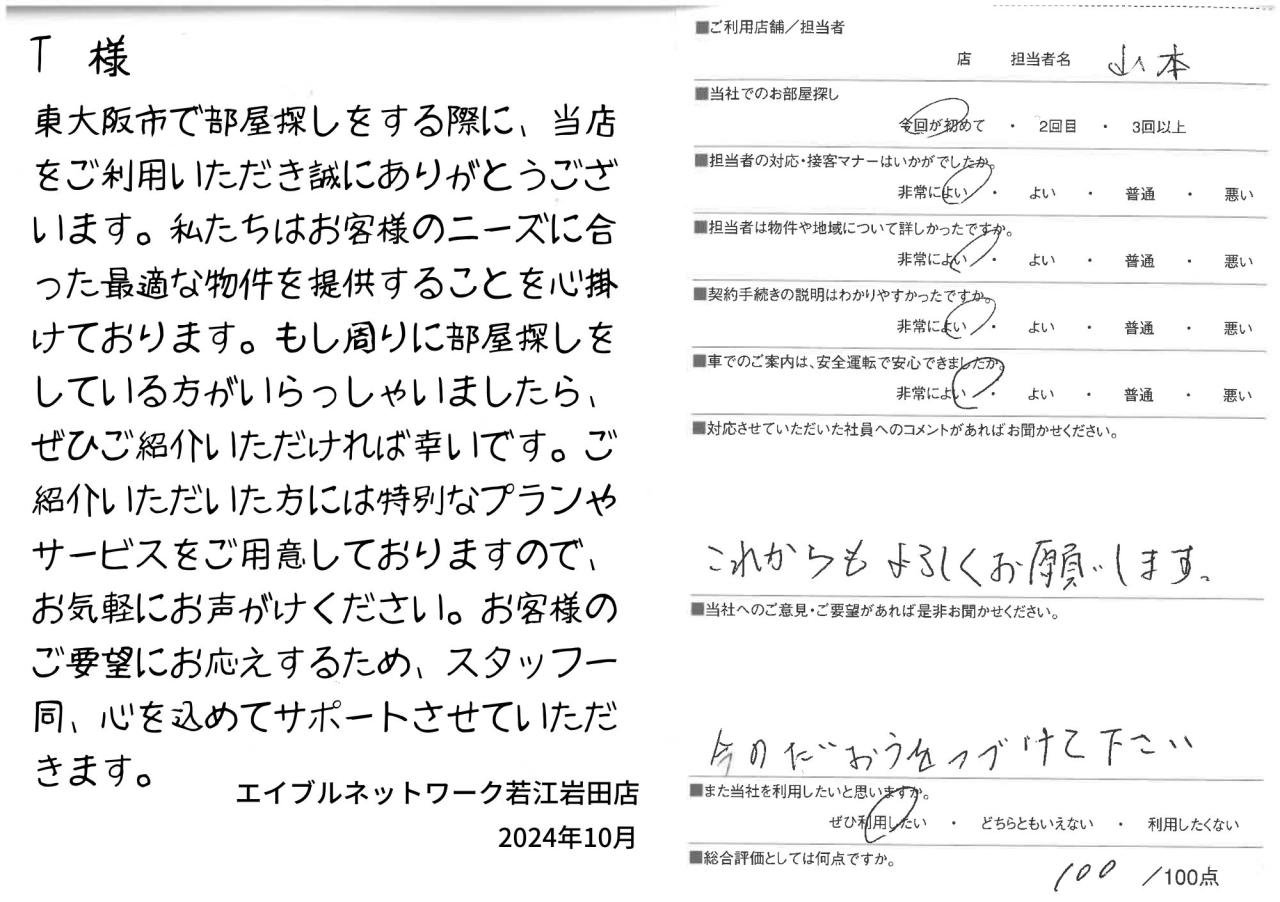 T 様
東大阪市で部屋探しをする際に、当店
をご利用いただき誠にありがとうござ
います。私たちはお客様のニーズに合
った最適な物件を提供することを心掛
けております。もし周りに部屋探しを
している方がいらっしゃいましたら、
ぜひご紹介いただければ幸いです。ご
紹介いただいた方には特別なプランや
サービスをご用意しておりますので、
お気軽にお声がけください。お客様の
ご要望にお応えするため、スタッフ一
同、心を込めてサポートさせていただ
きます。
エイブルネットワーク若江岩田店
2024年10月
■ご利用店舗／担当者
店 担当者名 山本
■当社でのお部屋探し
今回が初めて ・ 2回目 ・ 3回以上
■担当者の対応・接客マナーはいかがでしたか。
非常によい ・ よい ・ 普通 ・ 悪い
■担当者は物件や地域について詳しかったですか。
非常によい ・ よい ・ 普通 ・ 悪い
■契約手続きの説明はわかりやすかったですか。
非常によい ・ よい ・ 普通 ・ 悪い
■車でのご案内は、安全運転で安心できましたか。
非常によい ・ よい ・ 普通 ・ 悪い
■対応させていただいた社員へのコメントがあればお聞かせください。
これからもよろしくお願いします。
■当社へのご意見・ご要望があれば是非お聞かせください。
今のたいおうをつづけて下さい
■また当社を利用したいと思いますか。
ぜひ利用したい ・ どちらともいえない ・ 利用したくない
■総合評価としては何点ですか。
100 /100点